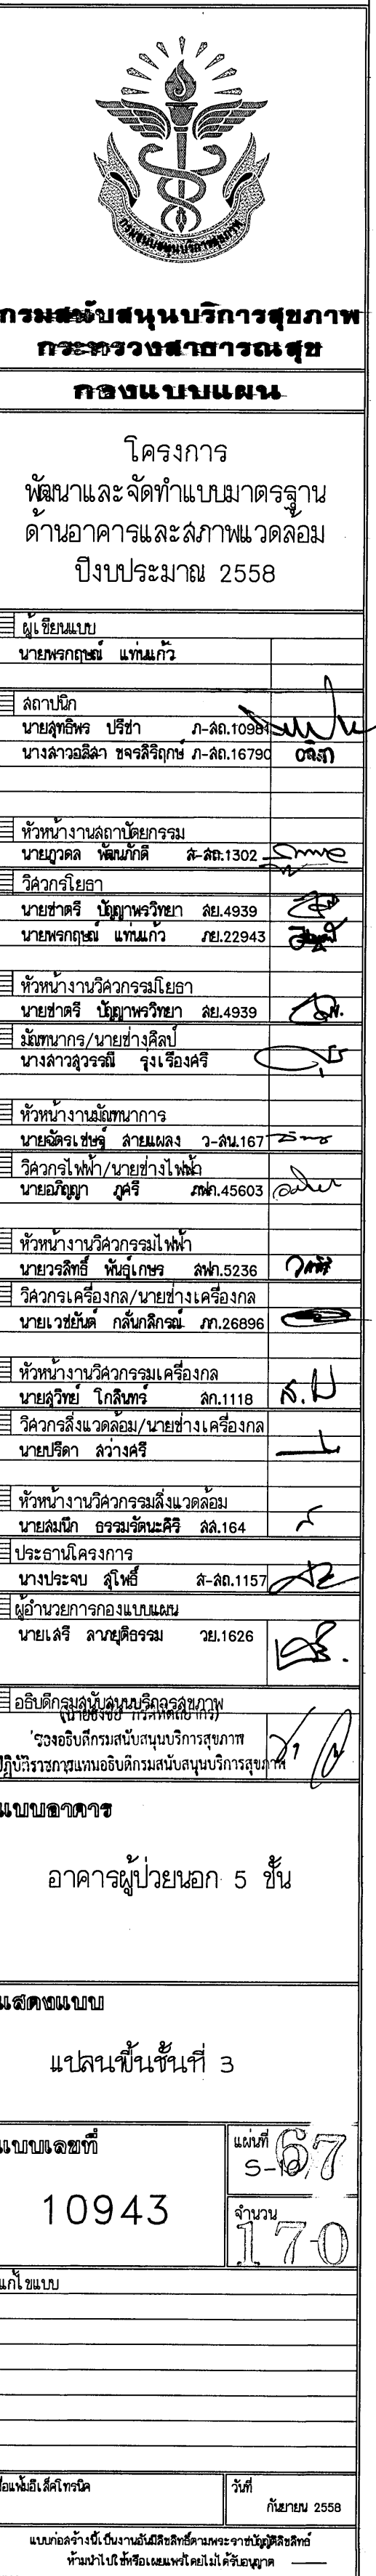 กรมสนับสนุนบริการสุขภาพ
กรมสนับสนุนบริการสุขภาพ
กระทรวงสาธารณสุข
กองแบบแผน
โครงการ
พัฒนาและจัดทำแบบมาตรฐาน
ด้านอาคารและสภาพแวดล้อม
ปีงบประมาณ 2558
ผู้เขียนแบบ
นายพรกฤษณ์ แท่นแก้ว
สถาปนิก
นายสุทธิพร ปรีชา ภ-สถ.10981
นางสาวอลิสา ขจรสิริฤกษ์ ภ-สถ.16790
หัวหน้างานสถาปัตยกรรม
นายภูวดล พัฒนภักดี ส-สถ.1302
วิศวกรโยธา
นายชาตรี ปัญญาพรวิทยา สย.4939
นายพรกฤษณ์ แท่นแก้ว ภย.22943
หัวหน้างานวิศวกรรมโยธา
นายชาตรี ปัญญาพรวิทยา สย.4939
มัณฑนากร/นายช่างศิลป์
นางสาวสุวรรณี รุ่งเรืองศรี
หัวหน้างานมัณฑนาการ
นายฉัตรเชษฐ์ สายแผลง ว-สน.167
วิศวกรไฟฟ้า/นายช่างไฟฟ้า
นายอภิญญา ภูศรี ภฟก.45603
หัวหน้างานวิศวกรรมไฟฟ้า
นายวรสิทธิ์ พันธุ์เกษร สฟก.5236
วิศวกรเครื่องกล/นายช่างเครื่องกล
นายเวชยันต์ กลั่นกลิกรณ์ ภก.26896
หัวหน้างานวิศวกรรมเครื่องกล
นายสุวิทย์ โกสินทร์ สก.1118
วิศวกรสิ่งแวดล้อม/นายช่างเครื่องกล
นายปรีดา สว่างศรี
หัวหน้างานวิศวกรรมสิ่งแวดล้อม
นายสมนึก ธรรมรัตนะศิริ สส.164
ประธานโครงการ
นางประจบ สุโพธิ์ ส-สถ.1157
ผู้อำนวยการกองแบบแผน
นายเสรี ลาภยุติธรรม วย.1626
อธิบดีกรมสนับสนุนบริการสุขภาพ
รองอธิบดีกรมสนับสนุนบริการสุขภาพ
ปฏิบัติราชการแทนอธิบดีกรมสนับสนุนบริการสุขภาพ
แบบอาคาร
อาคารผู้ป่วยนอก 5 ชั้น
แสดงแบบ
แปลนพื้นชั้นที่ 3
แบบเลขที่
10943
แผ่นที่ 67
จำนวน
170
แก้ไขแบบ
ชื่อแฟ้มอิเล็คโทรนิค
วันที่
กันยายน 2558
แบบก่อสร้างนี้เป็นงานอันมีลิขสิทธิ์ตามพระราชบัญญัติลิขสิทธิ์
ห้ามนำไปใช้หรือเผยแพร่โดยไม่ได้รับอนุญาต